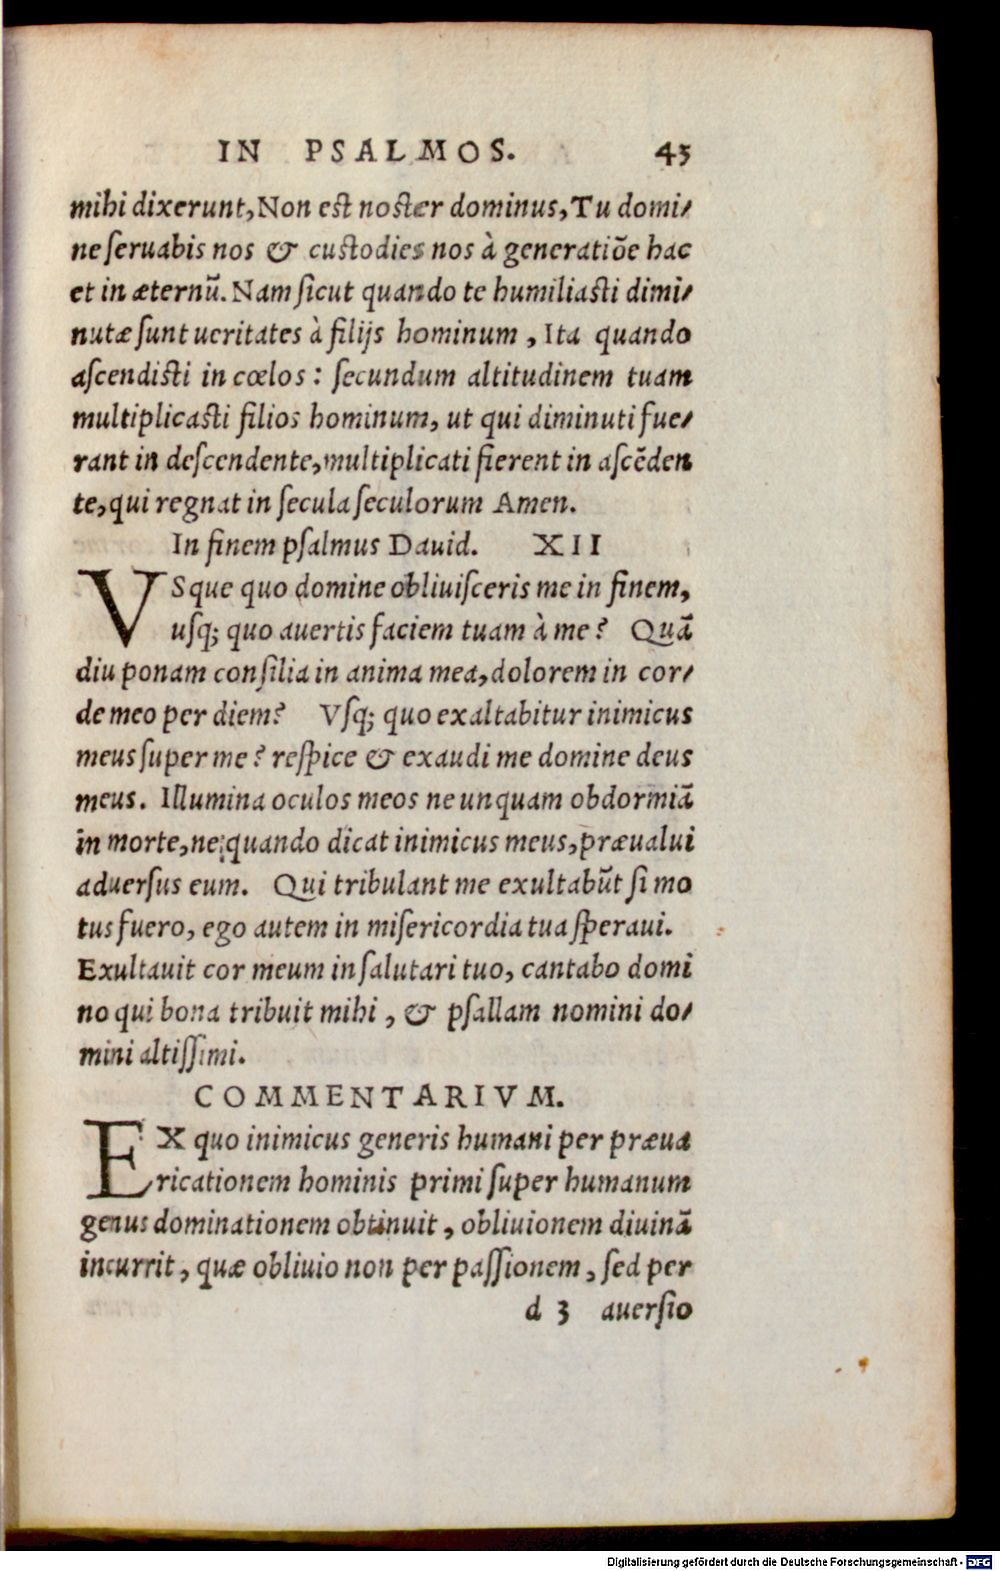 IN PSALMOS. 43
mihi dixerunt, Non est noster dominus, Tu domi-
ne ſeruabis nos & custodies nos à generatiõe hac
et in æternũ. Nam ſicut quando te humiliasti dimi-
nutæ ſunt ueritates à filijs hominum, Ita quando
aſcendisti in cœlos: ſecundum altitudinem tuam
multiplicasti filios hominum, ut qui diminuti fue-
rant in deſcendente, multiplicati fierent in aſcẽden
te, qui regnat in ſecula ſeculorum Amen.
In finem pſalmus Dauid. XII
VSque quo domine obliuiſceris me in finem,
uſq; quo auertis faciem tuam à me? Quã
diu ponam conſilia in anima mea, dolorem in cor-
de meo per diem? Vſq; quo exaltabitur inimicus
meus ſuper me? reſpice & exaudi me domine deus
meus. Illumina oculos meos ne unquam obdormiã
in morte, ne quando dicat inimicus meus, præualui
aduerſus eum. Qui tribulant me exultabũt ſi mo
tus fuero, ego autem in miſericordia tua ſperaui.
Exultauit cor meum in ſalutari tuo, cantabo domi
no qui bona tribuit mihi, & pſallam nomini do-
mini altiſſimi.
COMMENTARIVM.
EX quo inimicus generis humani per præua
ricationem hominis primi ſuper humanum
genus dominationem obtinuit, obliuionem diuinã
incurrit, quæ obliuio non per paſſionem, ſed per
d 3 auerſio
Digitalisierung gefördert durch die Deutsche Forschungsgemeinschaft - DFG